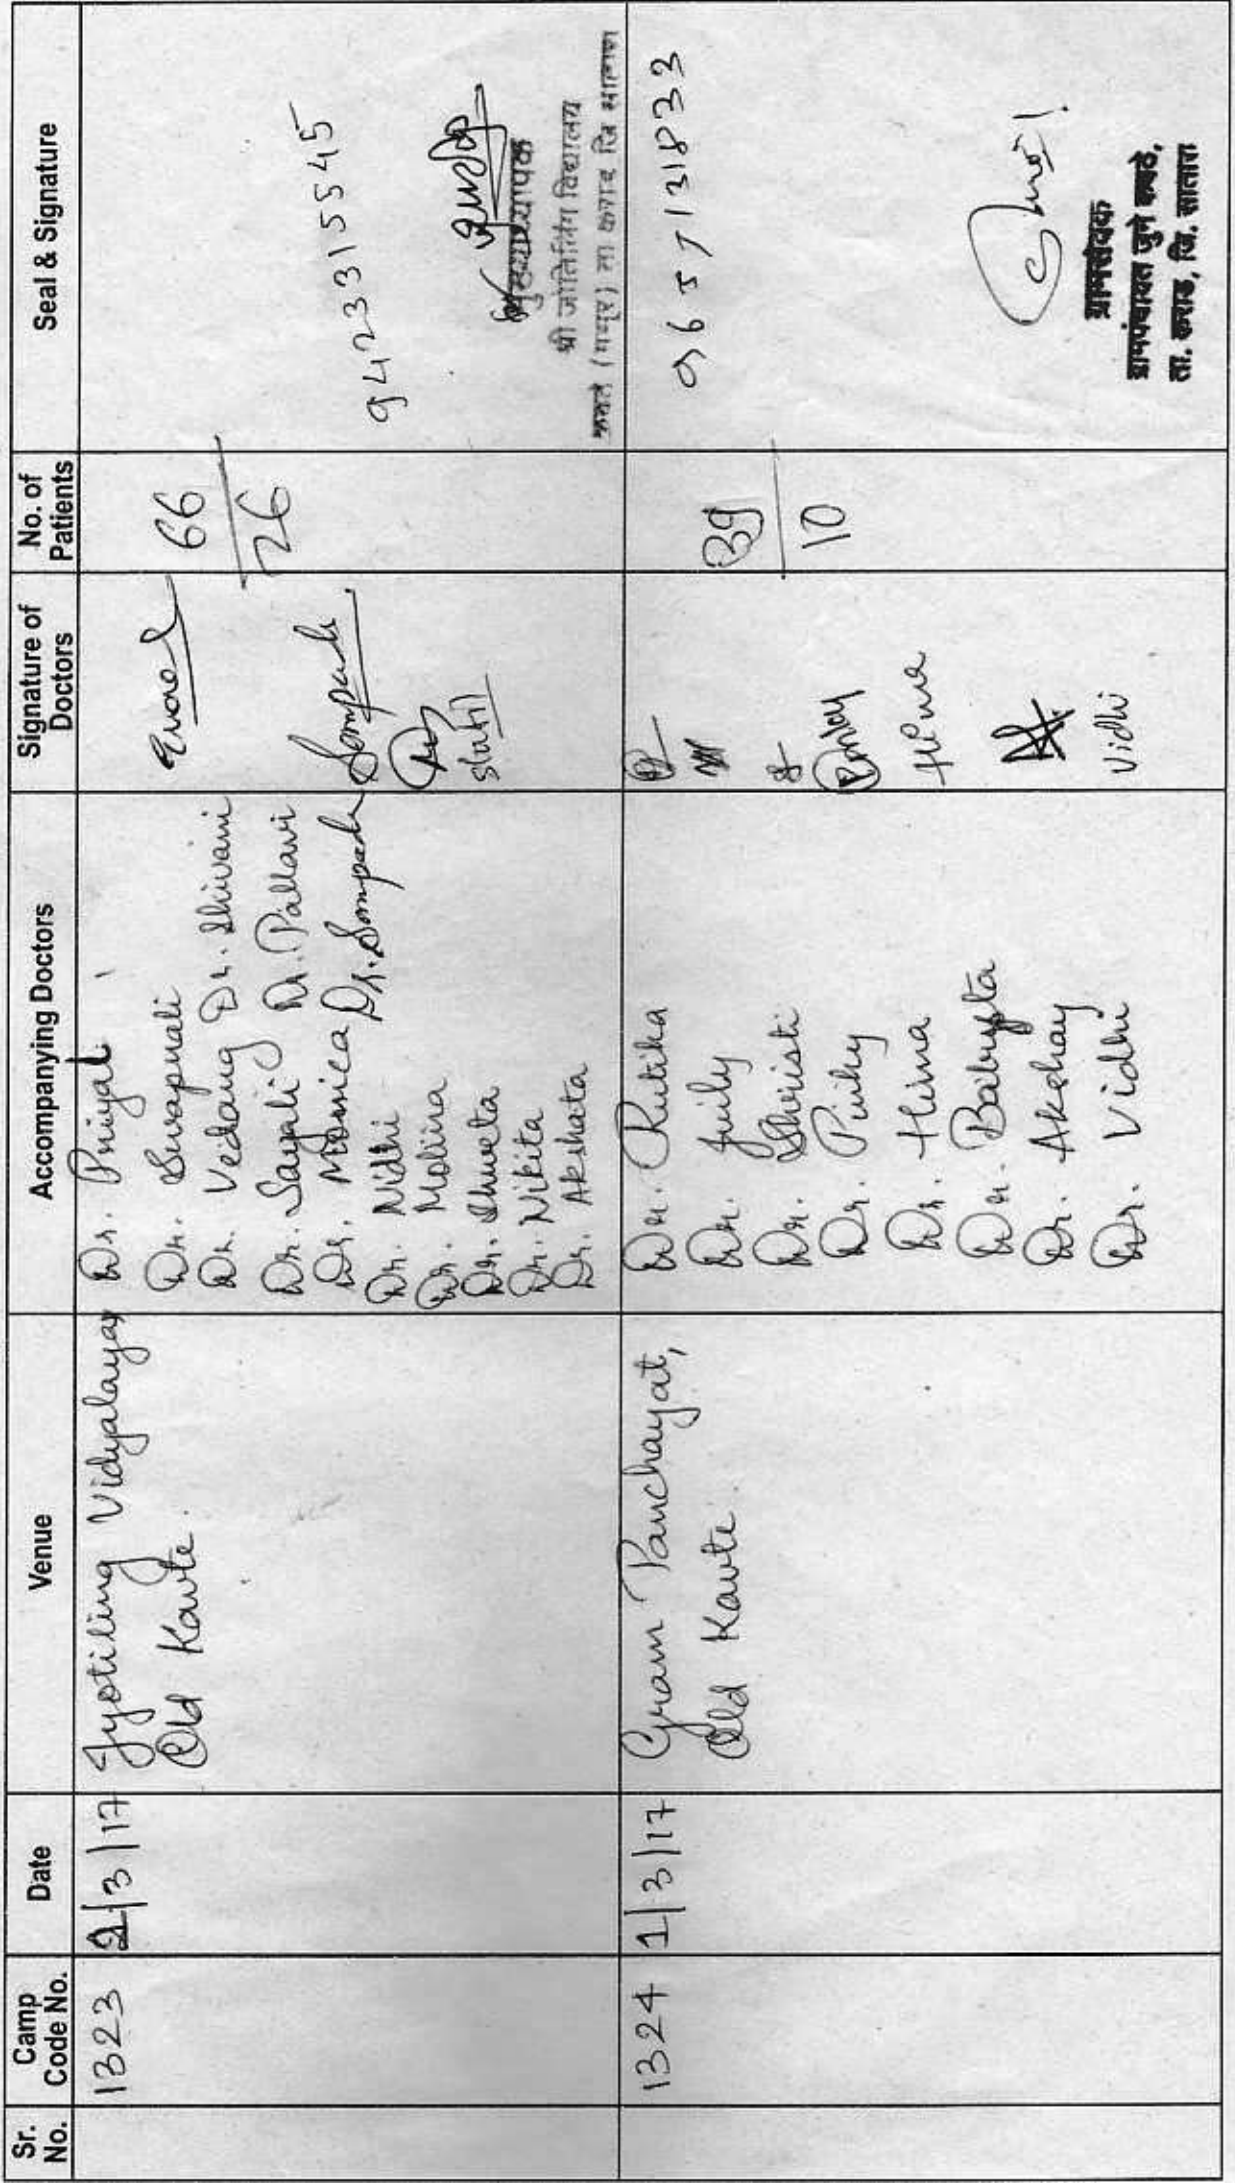 Sr. No.
Camp Code No.
Date
Venue
Accompanying Doctors
Signature of Doctors
No. of Patients
Seal & Signature
1323
1/3/17
Jyotiling Vidyalaya
Old Kavte.
Dr. Priyal
Dr. Swapnali
Dr. Vedang Dr. Shivani
Dr. Sayali Dr. Pallavi
Dr. Monica Dr. Sampada
Dr. Nidhi
Dr. Molina
Dr. Shweta
Dr. Nikita
Dr. Akshata
66
26
9423315545
मुख्याध्यापक
श्री जोतिर्लिंग विद्यालय
ता कराड जि सातारा
1324
1/3/17
Gram Panchayat,
Old Kavte.
Dr. Rutika
Dr. Juily
Dr. Shristi
Dr. Pinky
Dr. Hina
Dr.
Dr. Akshay
Dr. Vidhi
Vidhi
39
10
9657131833
ग्रामसेवक
ग्रामपंचायत जुने कवठे,
ता. कराड, जि. सातारा